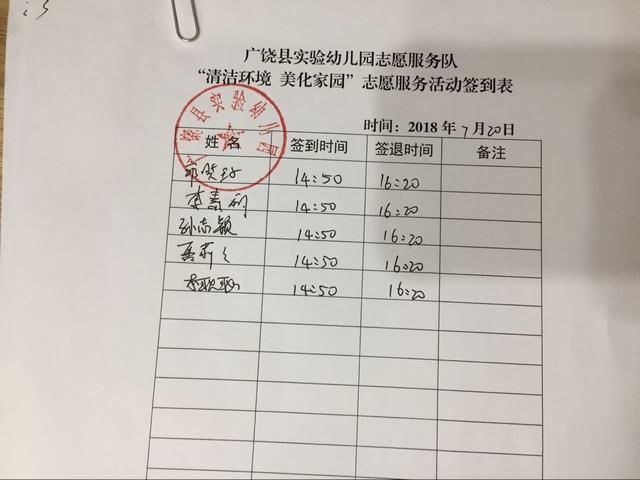 广饶县实验幼儿园志愿服务队
“清洁环境 美化家园”志愿服务活动签到表
广饶县实验幼儿园
时间：2018 年 7 月 20 日
姓 名 签到时间 签退时间 备注
14:50 16:20
李素 14:50 16:20
孙志颖 14:50 16:20
14:50 16:20
14:50 16:20